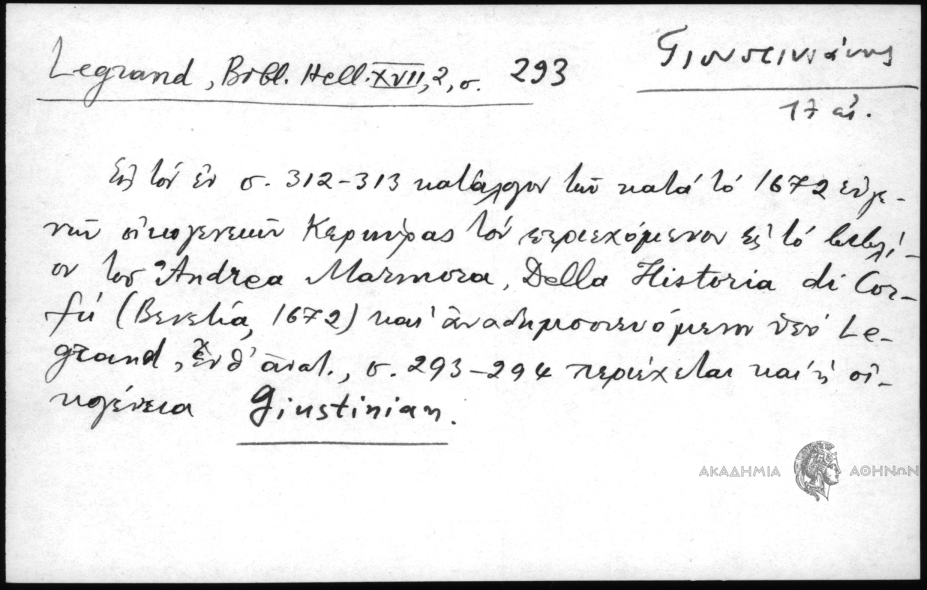 Legrand, Bibl. Hell. XVII, 2, σ. 293
Γιουστινιάνης
17 αἰ.
Εἰς τὸν ἐν σ. 312-313 κατάλογον τῶν κατὰ τὸ 1672 εὐγε-
νῶν οἰκογενειῶν Κερκύρας τὸν περιεχόμενον εἰς τὸ βιβλί-
ον τοῦ Andrea Marmora, Della Historia di Cor-
fú (Βενετία, 1672) καὶ ἀναδημοσιευόμενον ὑπὸ Le-
grand, ἔνθ' ἀνωτ., σ. 293-294 περιέχεται καὶ ἡ οἰ-
κογένεια Giustinian.
ΑΚΑΔΗΜΙΑ ΑΘΗΝΩΝ